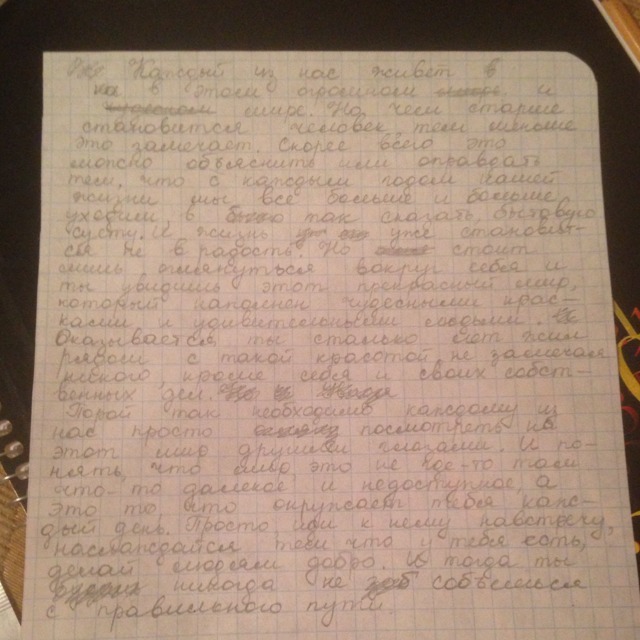 Каждый из нас живет в
в этом огромном и
мире. Но чем старше
становится человек тем меньше
это замечает. Скорее всего это
можно объяснить или оправдать
тем, что с каждым годом нашей
жизни мы все больше и больше
уходим в так сказать бытовую
суету. И жизнь уже становит-
ся не в радость. Но стоит
лишь оглянуться вокруг себя и
ты увидишь этот прекрасный мир,
который наполнен чудесными крас-
ками и удивительными людьми.
Оказывается ты столько лет жил
рядом с такой красотой не замечая
никого кроме себя и своих собст-
венных дел.
Порой так необходимо каждому из
нас просто посмотреть на
этот мир другими глазами. И по-
нять, что это не где-то там
что-то далекое и недоступное, а
это то что окружает тебя каж-
дый день. Просто иди к нему навстречу,
наслаждайся тем что у тебя есть,
делай людям добро. И тогда ты
никогда не собьешься
с правильного пути